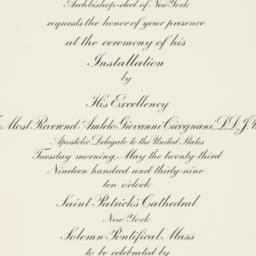 Archbishop-elect of New York
requests the honor of your presence
at the ceremony of his
Installation
by
His Excellency
Most Reverend Amleto Giovanni Cicognani, D.D., J.
Apostolic Delegate to the United States
Tuesday morning, May the twenty-third
Nineteen hundred and thirty-nine
ten o'clock
Saint Patrick's Cathedral
New York
Solemn Pontifical Mass
to be celebrated by